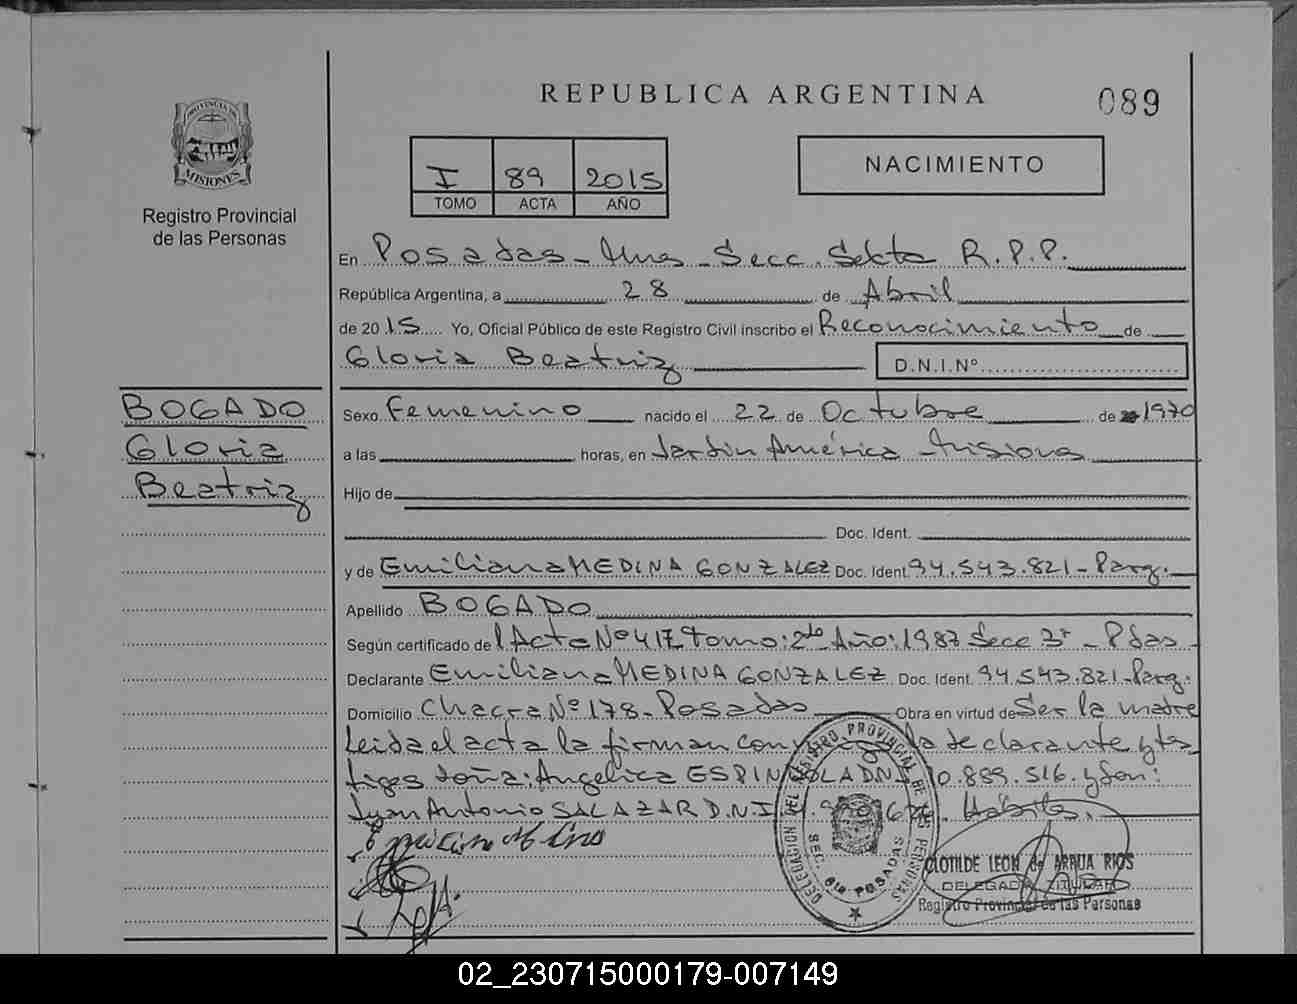 REPUBLICA ARGENTINA
089
PROVINCIA DE
MISIONES
Registro Provincial
de las Personas
I 89 2015
TOMO ACTA AÑO
NACIMIENTO
En Posadas - Mnes - Secc. Sexta R.P.P.
República Argentina, a 28 de Abril
de 2015 Yo, Oficial Público de este Registro Civil inscribo el Reconocimiento de
Gloria Beatriz D.N.I.Nº
BOGADO
Gloria
Beatriz
Sexo Femenino nacido el 22 de Octubre de 1970
a las horas, en Jardin América - Misiones
Hijo de
Doc. Ident.
y de Emiliana MEDINA GONZALEZ Doc. Ident. 94.543.821 - Parag.
Apellido BOGADO
Según certificado de l Acta Nº 417 Tomo: 2do Año: 1987 Secc 3ª - Pdas
Declarante Emiliana MEDINA GONZALEZ Doc. Ident. 94.543.821 - Parg.
Domicilio Chacra Nº 178 - Posadas Obra en virtud de Ser la madre
Leida el acta la firman con la declarante y tes
tigos doña: Angelica ESPINOLA DNI 0.889.516. y don:
Juan Antonio SALAZAR D.N.I Habiles.
DELEGACION DEL REGISTRO PROVINCIAL DE LAS PERSONAS
SEC. 6ta POSADAS
CLOTILDE LEON de ARRUA RIOS
DELEGADA TITULAR
Registro Provincial de las Personas
02_230715000179-007149